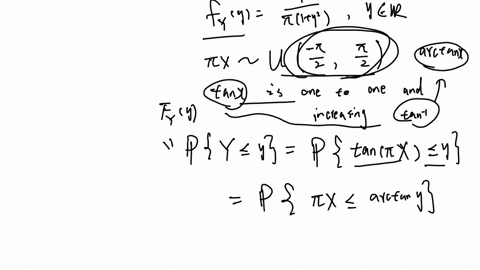 f_Y(y) = 1/π(1+y²) , y ∈ ℝ
πX ~ U(-π/2, π/2) arctanx
tanx is one to one and
F_Y(y) increasing tan⁻¹
" P{Y ≤ y} = P{tan(πX) ≤ y}
= P{πX ≤ arctan y}